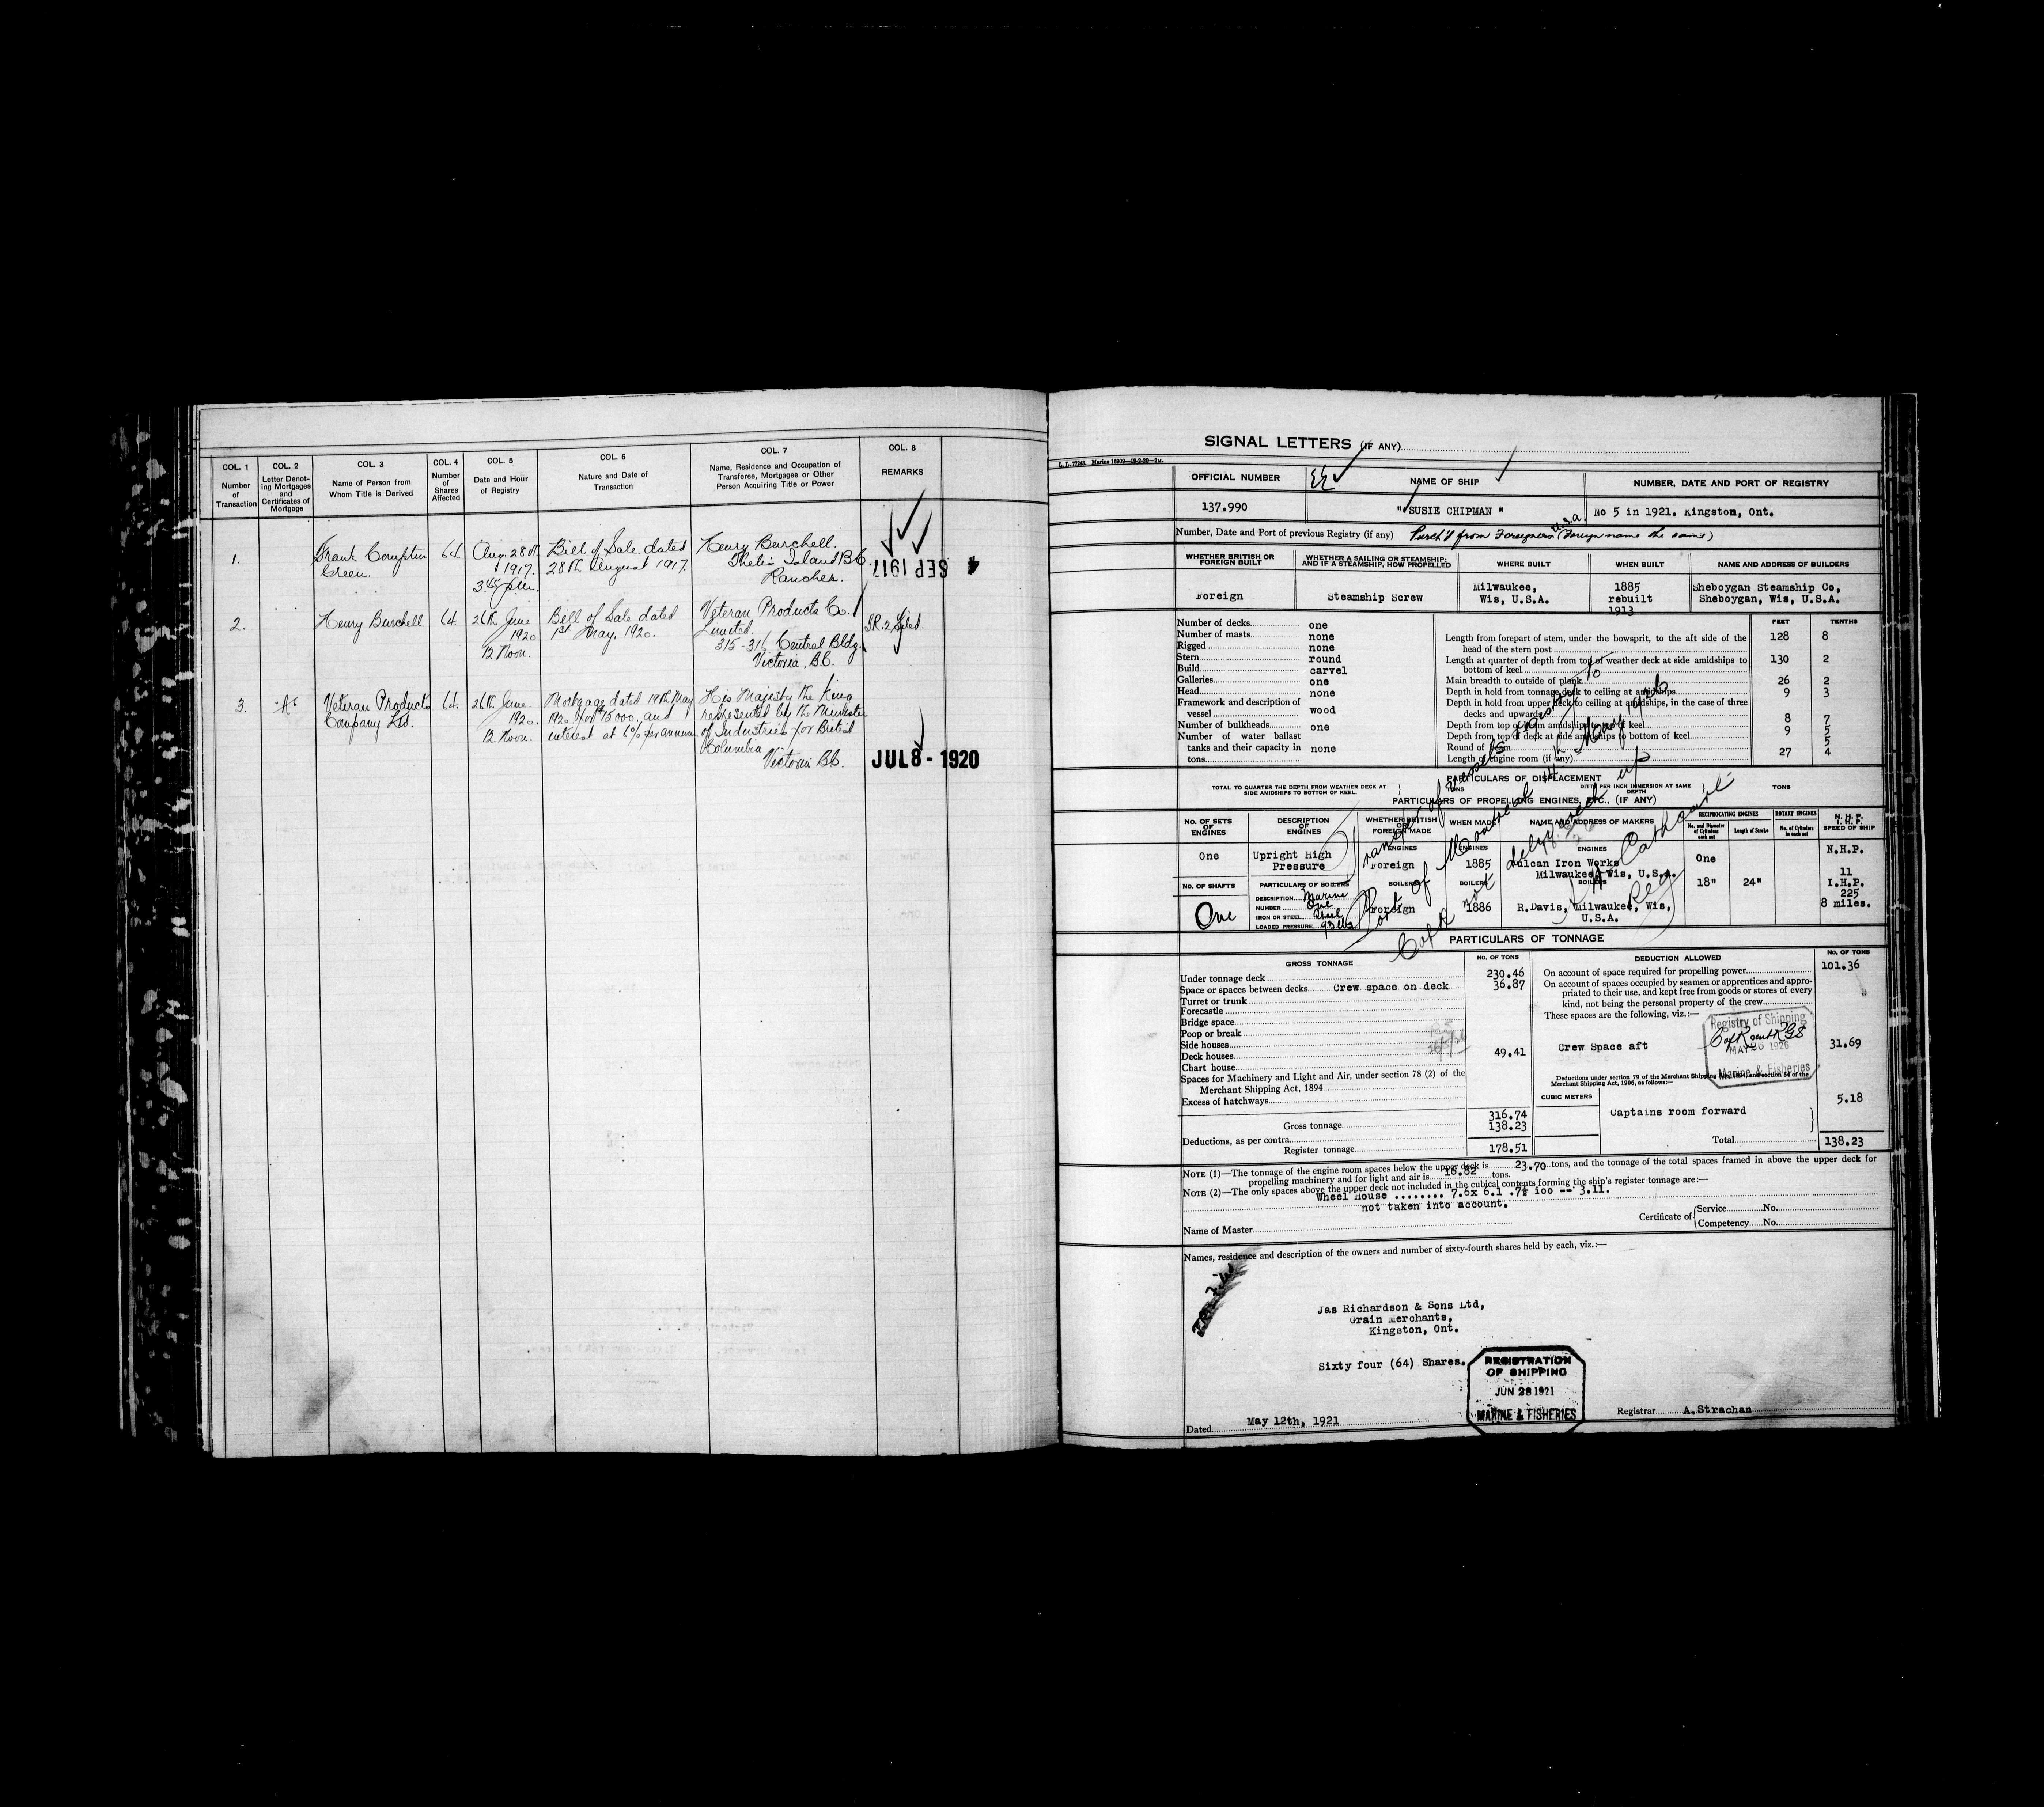 COL. 1
Number
of
Transaction
COL. 2
Letter Denot-
ing Mortgages
and
Certificates of
Mortgage
COL. 3
Name of Person from
Whom Title is Derived
COL. 4
Number
of
Shares
Affected
COL. 5
Date and Hour
of Registry
COL. 6
Nature and Date of
Transaction
COL. 7
Name, Residence and Occupation of
Transferee, Mortgagee or Other
Person Acquiring Title or Power
COL. 8
REMARKS
1.
Frank Compton
Green.
64
Aug. 28th
1917.
3 45 p.m.
Bill of Sale dated
28th August 1917.
Henry Burchell.
Thetis Island B.C.
Rancher.
4 SEP 1917
2.
Henry Burchell
64
26th June
1920
12 Noon.
Bill of Sale dated
1st May, 1920.
Veteran Products Co.
Limited.
315-316 Central Bldg.
Victoria, B.C.
S.R. 2 filed.
3.
"A"
Veteran Products
Company Ltd.
64
26th June
1920.
12 Noon.
Mortgage dated 19th May
1920 for $15000. and
interest at 6% per annum
His Majesty the King
represented by the Minister
of Industries for British
Columbia
Victoria B.C.
JUL 8 - 1920
SIGNAL LETTERS (IF ANY)
L. L. 77243. Marine 16909—19-3-20—2M.
OFFICIAL NUMBER
NAME OF SHIP
NUMBER, DATE AND PORT OF REGISTRY
137.990
" SUSIE CHIPMAN "
No 5 in 1921. Kingston, Ont.
Number, Date and Port of previous Registry (if any) Purch'd from Foreigners U.S.A. (Foreign name the same)
WHETHER BRITISH OR
FOREIGN BUILT
WHETHER A SAILING OR STEAMSHIP;
AND IF A STEAMSHIP, HOW PROPELLED
WHERE BUILT
WHEN BUILT
NAME AND ADDRESS OF BUILDERS
Foreign
Steamship Screw
Milwaukee,
Wis, U.S.A.
1885
rebuilt
1913
Sheboygan Steamship Co,
Sheboygan, Wis, U.S.A.
Number of decks one
Number of masts none
Rigged none
Stern round
Build carvel
Galleries one
Head none
Framework and description of
vessel wood
Number of bulkheads one
Number of water ballast
tanks and their capacity in none
tons
FEET TENTHS
Length from forepart of stem, under the bowsprit, to the aft side of the
head of the stern post 128 8
Length at quarter of depth from top of weather deck at side amidships to
bottom of keel 130 2
Main breadth to outside of plank 26 2
Depth in hold from tonnage deck to ceiling at amidships 9 3
Depth in hold from upper deck to ceiling at amidships, in the case of three
decks and upwards
Depth from top of beam amidships to top of keel 8 7
Depth from top of deck at side amidships to bottom of keel 9 5
Round of beam 5
Length of engine room (if any) 27 4
Transfer of vessels registry to
Port of Montreal 14th May, 1926
C of R not delivered up
Cathcart
Reg
PARTICULARS OF DISPLACEMENT
TOTAL TO QUARTER THE DEPTH FROM WEATHER DECK AT
SIDE AMIDSHIPS TO BOTTOM OF KEEL.
TONS
DITTO PER INCH IMMERSION AT SAME
DEPTH
TONS
PARTICULARS OF PROPELLING ENGINES, ETC., (IF ANY)
NO. OF SETS
OF
ENGINES
DESCRIPTION
OF
ENGINES
WHETHER BRITISH
OR
FOREIGN MADE
WHEN MADE
NAME AND ADDRESS OF MAKERS
RECIPROCATING ENGINES
No. and Diameter
of Cylinders
each set
Length of Stroke
ROTARY ENGINES
No. of Cylinders
in each set
N. H. P.
I. H. P.
SPEED OF SHIP
One
Upright High
Pressure
ENGINES
Foreign
ENGINES
1885
ENGINES
Vulcan Iron Works
Milwaukee, Wis, U.S.A.
One
18" 24"
N.H.P.
11
I.H.P.
225
8 miles.
NO. OF SHAFTS
One
PARTICULARS OF BOILERS
DESCRIPTION Marine
NUMBER One
IRON OR STEEL Steel
LOADED PRESSURE 93 lbs
BOILERS
Foreign
BOILERS
1886
BOILERS
R.Davis, Milwaukee, Wis,
U.S.A.
PARTICULARS OF TONNAGE
GROSS TONNAGE
NO. OF TONS
Under tonnage deck 230.46
Space or spaces between decks Crew space on deck 36.87
Turret or trunk
Forecastle
Bridge space
Poop or break
Side houses
Deck houses 49.41
Chart house
Spaces for Machinery and Light and Air, under section 78 (2) of the
Merchant Shipping Act, 1894
Excess of hatchways
Gross tonnage 316.74
Deductions, as per contra 138.23
Register tonnage 178.51
DEDUCTION ALLOWED
NO. OF TONS
On account of space required for propelling power 101.36
On account of spaces occupied by seamen or apprentices and appro-
priated to their use, and kept free from goods or stores of every
kind, not being the personal property of the crew
These spaces are the following, viz.:—
Crew Space aft 31.69
Registry of Shipping
MAY 1926
Marine & Fisheries
Deductions under section 79 of the Merchant Shipping Act, 1894, and section 54 of the
Merchant Shipping Act, 1906, as follows:—
CUBIC METERS
Captains room forward 5.18
Total 138.23
NOTE (1)—The tonnage of the engine room spaces below the upper deck is 23.70 tons, and the tonnage of the total spaces framed in above the upper deck for
propelling machinery and for light and air is 16.82 tons.
NOTE (2)—The only spaces above the upper deck not included in the cubical contents forming the ship's register tonnage are:—
Wheel House ........ 7.6x 6.1 .7½ 100 -- 3.11.
not taken into account.
Name of Master
Certificate of Service No.
Competency No.
Names, residence and description of the owners and number of sixty-fourth shares held by each, viz.:—
Jas Richardson & Sons Ltd,
Grain Merchants,
Kingston, Ont.
Sixty four (64) Shares.
REGISTRATION
OF SHIPPING
JUN 28 1921
MARINE & FISHERIES
Dated May 12th, 1921
Registrar A.Strachan